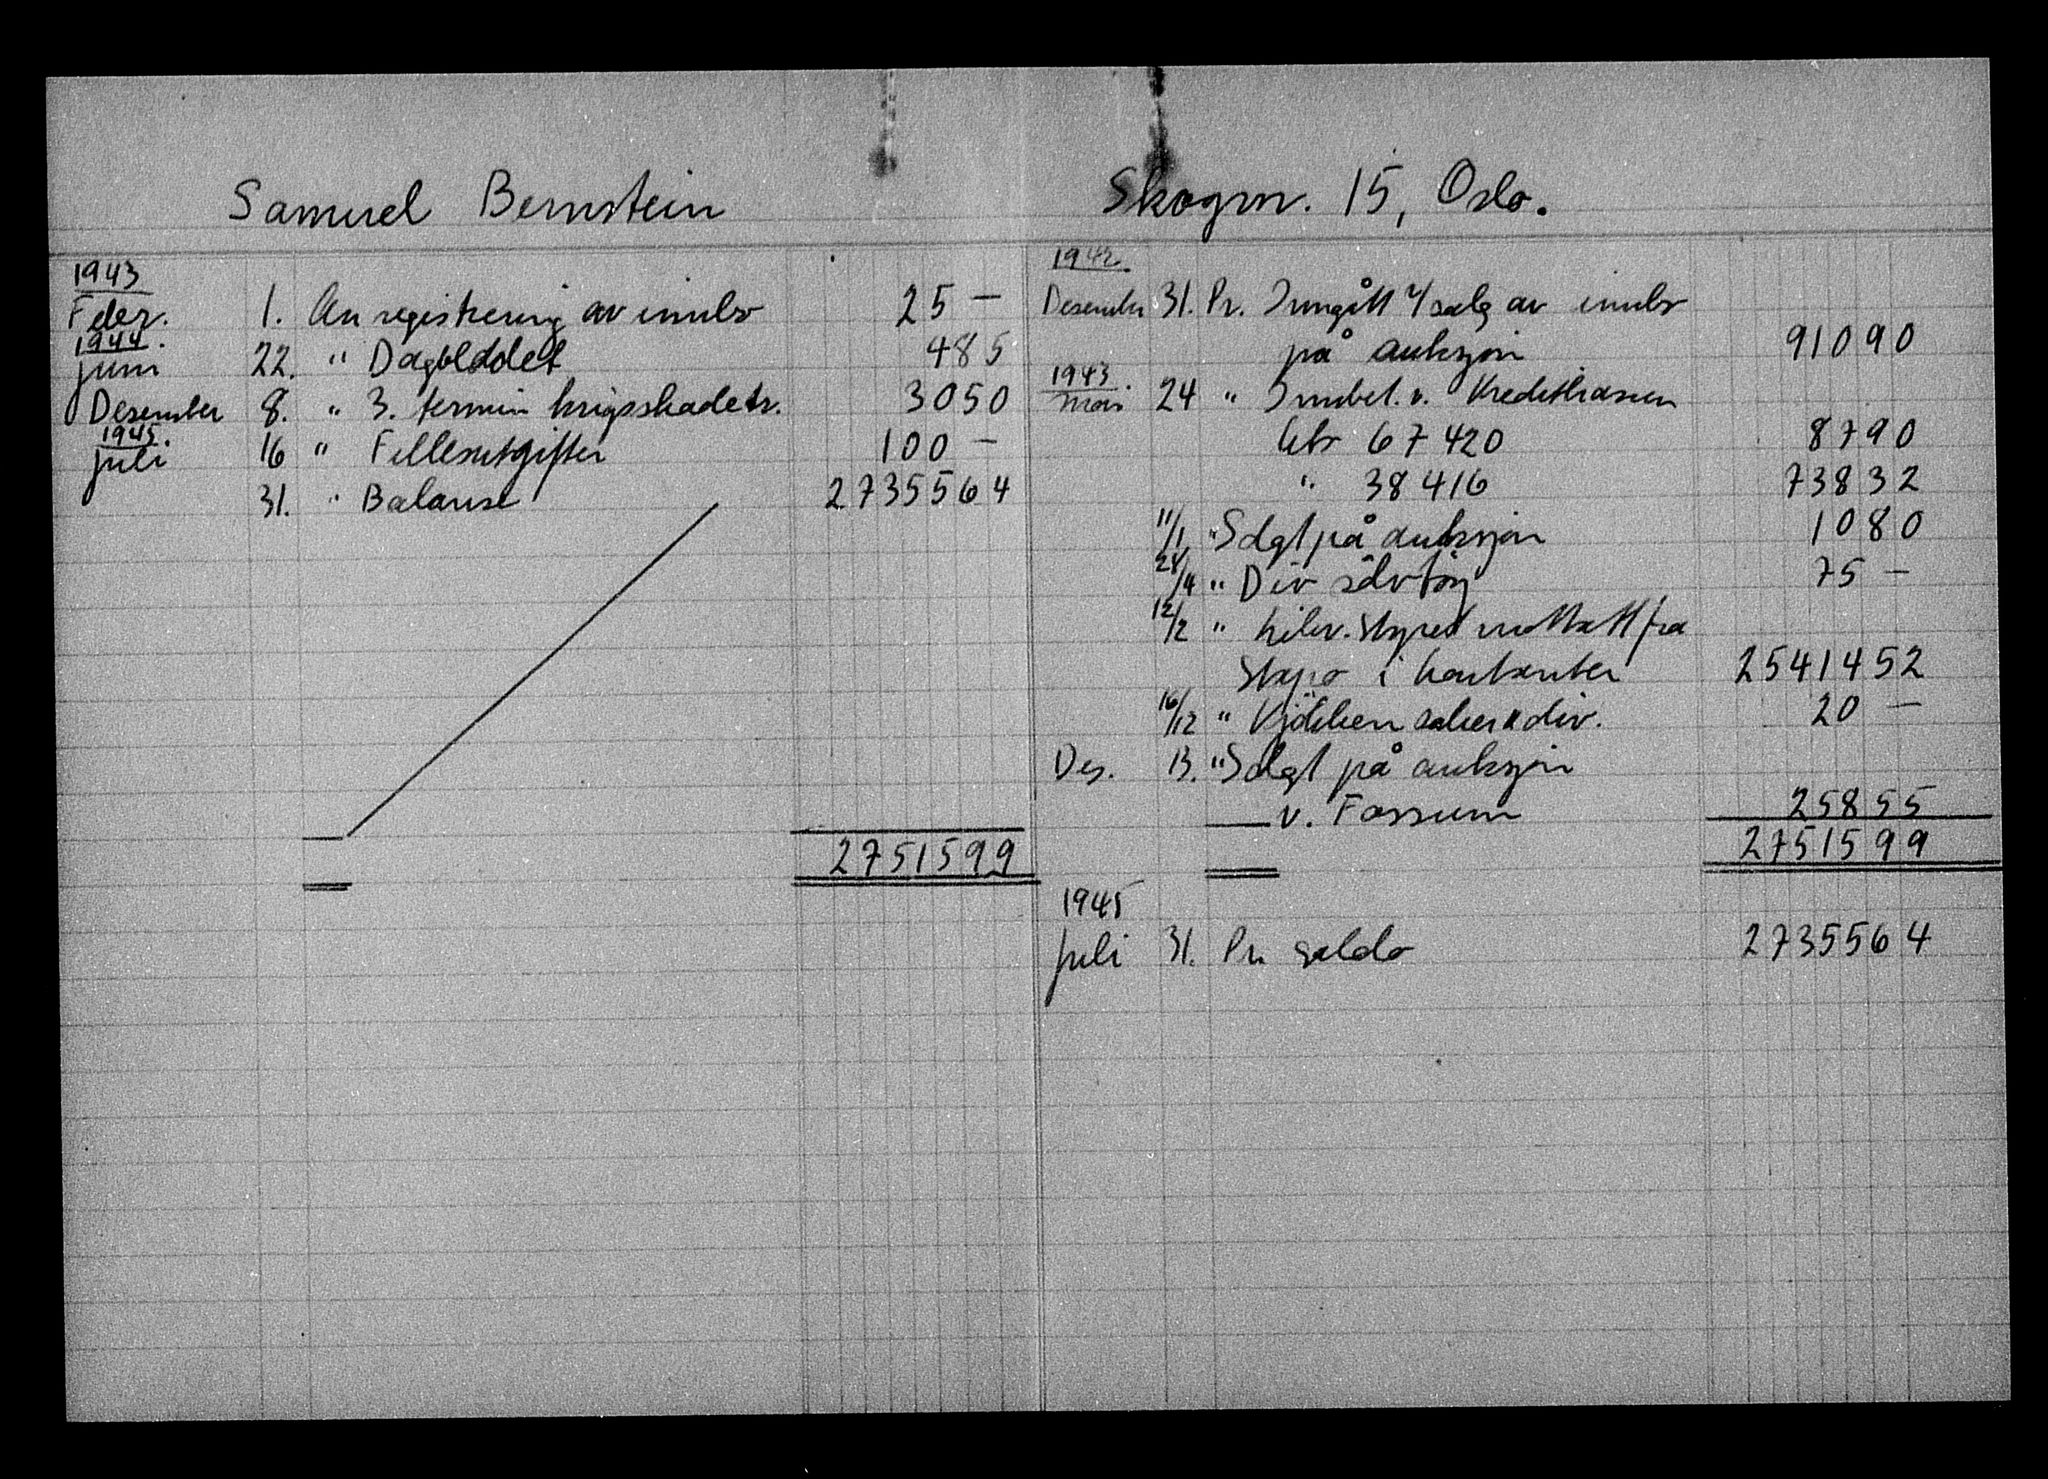 Samuel Bernstein
Skogm. 15, Oslo.
1943
Febr. 1. An registrering av innbo 25 —
1944.
juni 22. " Dagbladet 485
Desember 8. " 3. termin krigsskadetr. 3050
1945.
juli 16 " Fellesutgifter 100 —
31. " Balanse 2735564
2751599
1942.
Desember 31. Pr. Inngått v/salg av innbo
på auksjon 91090
1943.
mai 24 " Innbet. v. Kredittkassen
kto 67420 8790
" 38416 73832
11/1 " Solgt på auksjon 1080
28/4 " Div sølvtøy 75 —
12/2 " Likv. styret mottatt fra
Stapo i kontanter 2541452
16/12 " Kjökken saker & div. 20 —
Des. 13. " Solgt på auksjon
v. Fossum 25855
2751599
1945
juli 31. Pr. saldo 2735564